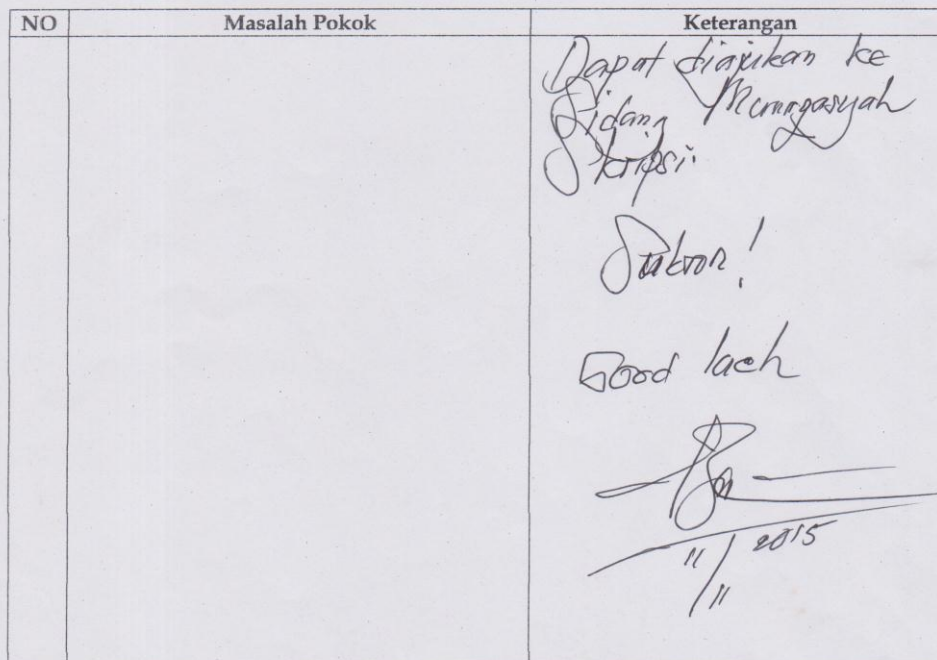 NO Masalah Pokok Keterangan
Dapat diajukan ke
Sidang Munaqasyah
Skripsi.
Sukron!
Good luck
11/11 2015